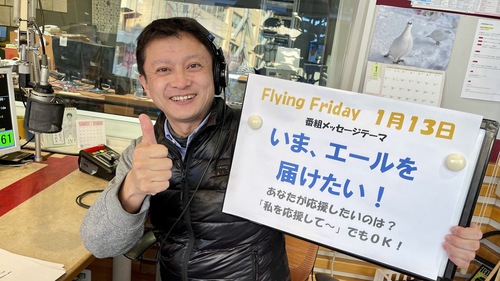 Flying Friday 1月13日
番組メッセージテーマ
いま、エールを
届けたい！
あなたが応援したいのは？
「私を応援して～」でもOK！
61